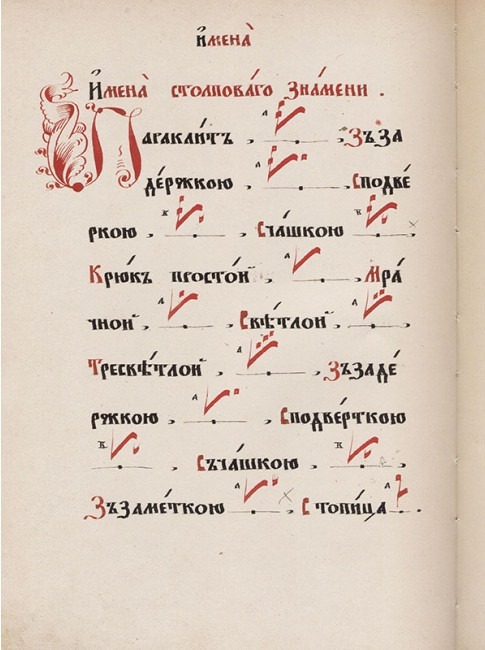 и҆менà
И҆менà столпова́го Зна́мени .
Параклитъ , Зъ за
де́ржкою , Сподве́
ркою , Съча́шкою ,
Крю́къ просто́й , Мра́
чной , Свѣ́тлой ,
Тресвѣ́тлой , Зъ заде́
ржкою , Сподве́рткою
, Съча́шкою ,
Зъ заме́ткою , Стопи́ца .